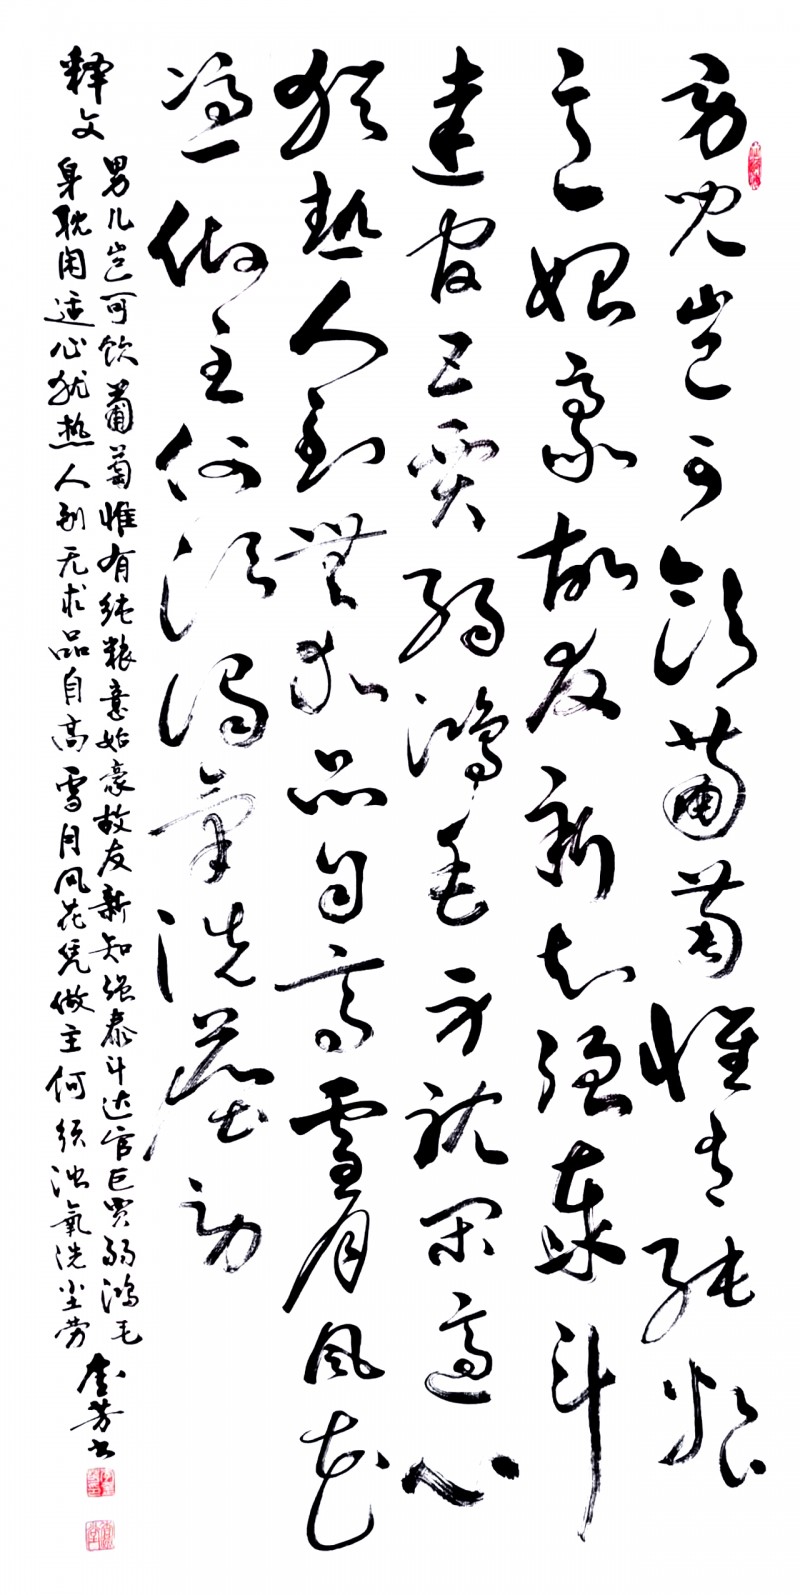 男儿岂可饮葡萄惟有纯粮
意始豪故友新知强泰斗
達官巨贾弱鸿毛身耽闲適心
猶热人到無求品自高雪月风花
凭做主何须浊氧洗尘劳
释文
男儿岂可饮葡萄惟有纯粮意始豪故友新知强泰斗达官巨贾弱鸿毛
身耽闲适心犹热人到无求品自高雪月风花凭做主何须浊氧洗尘劳
芳书